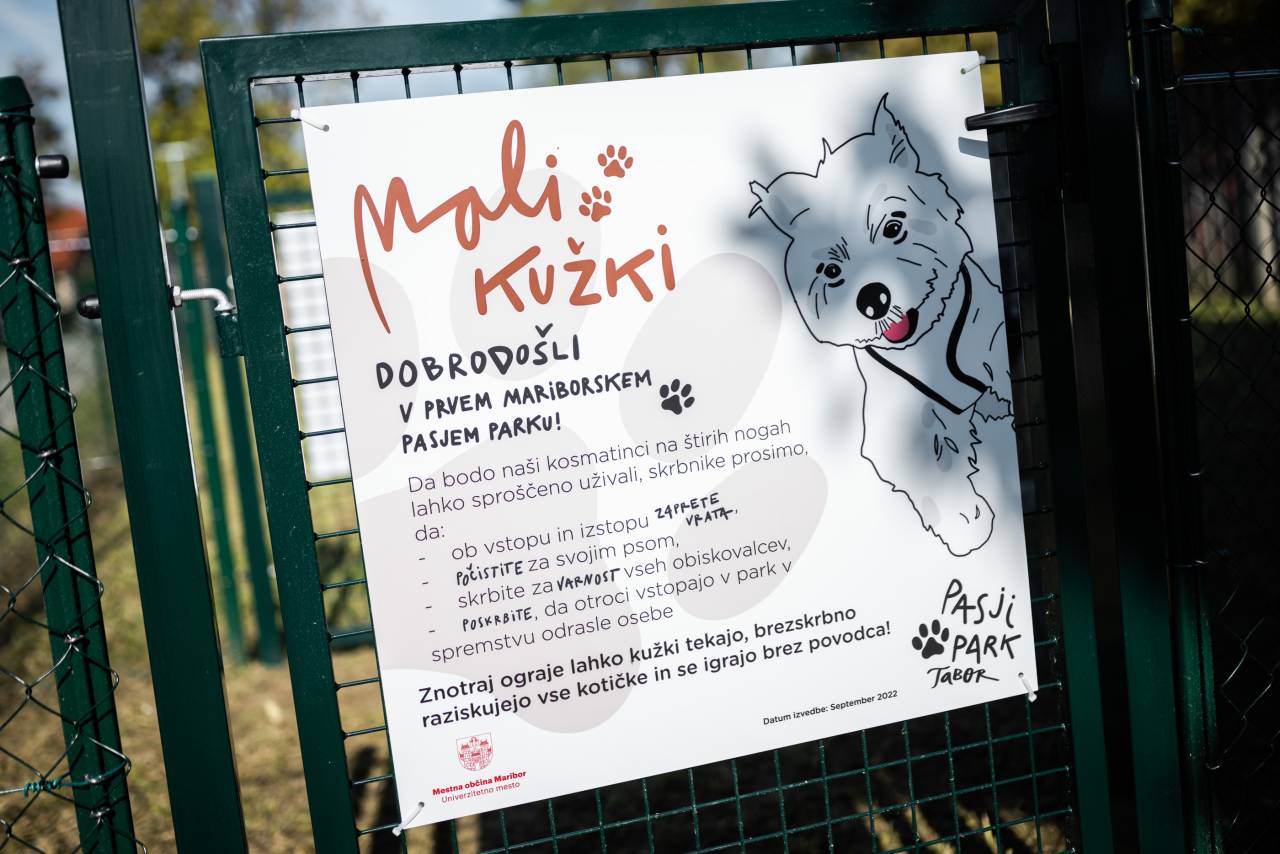 Mali
KUŽKI
DOBRODOŠLI
V PRVEM MARIBORSKEM
PASJEM PARKU!
Da bodo naši kosmatinci na štirih nogah
lahko sproščeno uživali, skrbnike prosimo,
da:
- ob vstopu in izstopu ZAPRETE VRATA,
- POČISTITE za svojim psom,
- skrbite za VARNOST vseh obiskovalcev,
- POSKRBITE, da otroci vstopajo v park v
spremstvu odrasle osebe
Znotraj ograje lahko kužki tekajo, brezskrbno
raziskujejo vse kotičke in se igrajo brez povodca!
PASJI
PARK
TABOR
Datum izvedbe: September 2022
Mestna občina Maribor
Univerzitetno mesto